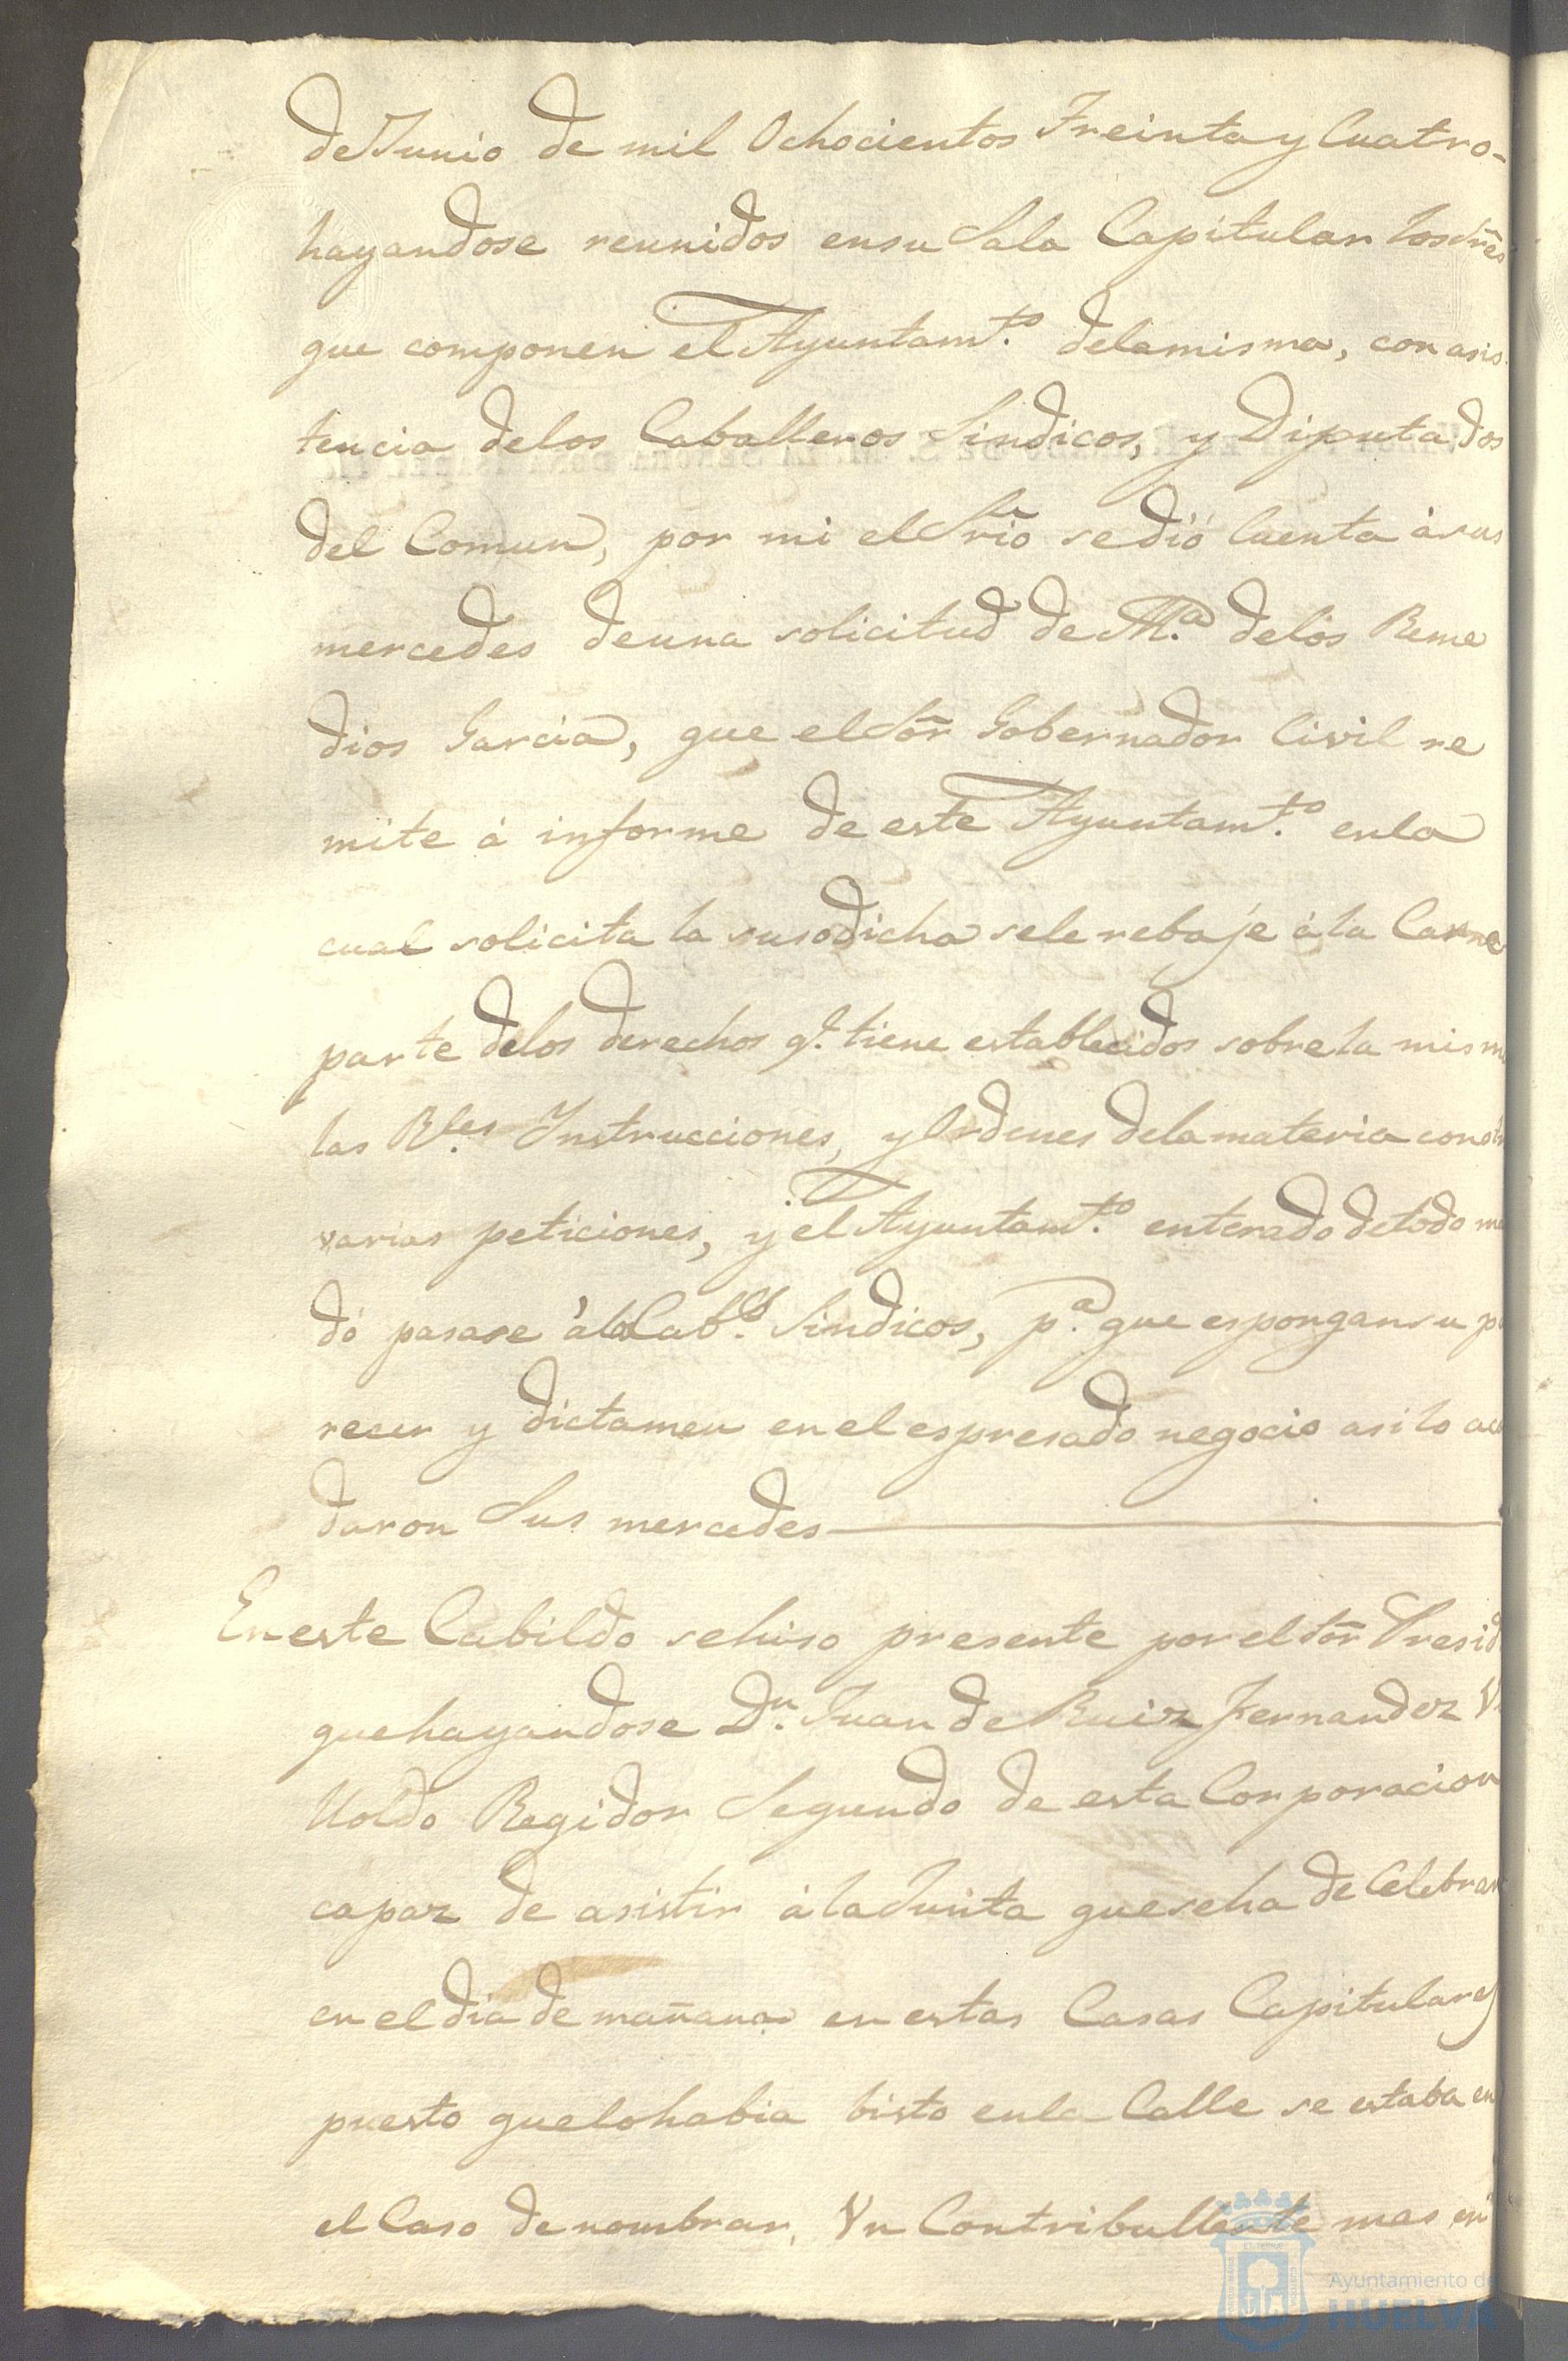 de Junio de mil Ochocientos Treinta y Cuatro-
hayandose reunidos ensu Sala Capitular los Sres
que componen el Ayuntamto. delamisma, con asis
tencia delos Caballeros Sindicos, y Diputados
del Comun, por mi el Srio se dió Cuenta à sus
mercedes deuna solicitud de Ma. delos Reme
dios Garcia, que el Sor Gobernador Civil re
mite á informe de este Ayuntamto. enla
cual solicita la susodicha sele rebaje á la Carne
parte delos derechos qe. tiene establecidos sobre la misma
las Rles. Instrucciones, y Ordenes dela materia con
varias peticiones, y el Ayuntamto. enterado detodo
dó pasase á los Cabs. Sindicos, pa. que espongan su
recer y dictamen en el espresado negocio asi lo
daron Sus mercedes
En este Cabildo se hiso presente por el Sor Presid
que hayandose Dn. Juan de Ruiz Fernandez
Uoldo Regidor Segundo de esta Corporacion
capaz de asistir á la Junta que se ha de Celebrar
en el dia de mañana en estas Casas Capitulares
puesto que lo habia bisto enla Calle se estaba en
el Caso de nombrar, Un Contribullente mas en
Ayuntamiento de
HUELVA